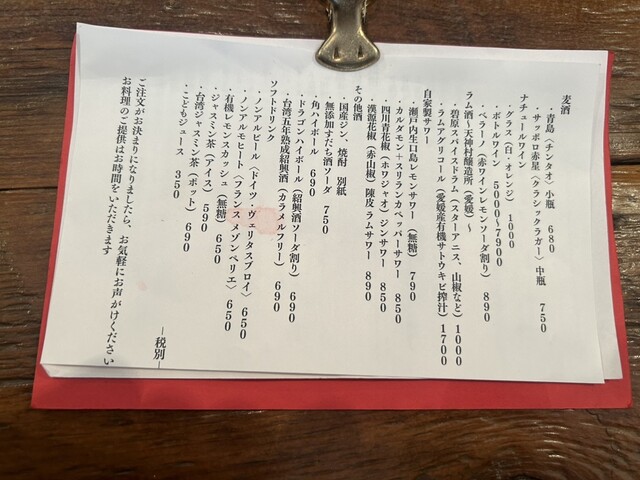 麦酒
・青島〈チンタオ〉小瓶 680
・サッポロ赤星〈クラシックラガー〉中瓶 750
ナチュールワイン
・グラス（白・オレンジ） 1000
・ボトルワイン 5000〜7900
・ベラーノ（赤ワインレモンソーダ割り） 890
ラム酒〜天神村醸造所（愛媛）〜
・碧原スパイスドラム（スターアニス、山椒など）1000
・ラムアグリコール（愛媛産有機サトウキビ搾汁）1700
自家製サワー
・瀬戸内生口島レモンサワー（無糖） 790
・カルダモン＋スリランカペッパーサワー 850
・四川青花椒（ホワジャオ）ジンサワー 850
・漢源花椒（赤山椒）陳皮ラムサワー 890
その他酒
・国産ジン、焼酎 別紙
・無添加すだち酒ソーダ 750
・角ハイボール 690
・ドラゴンハイボール（紹興酒ソーダ割り） 690
・台湾五年熟成紹興酒（カラメルフリー） 690
ソフトドリンク
・ノンアルビール〈ドイツ・ヴェリタスブロイ〉 650
・ノンアルモヒート〈フランスメゾンペリエ〉 650
・有機レモンスカッシュ（無糖）650
・ジャスミン茶（アイス） 590
・台湾ジャスミン茶（ポット） 690
・こどもジュース 350
ー税別ー
ご注文がお決まりになりましたら、お気軽にお声がけください
お料理のご提供はお時間をいただきます